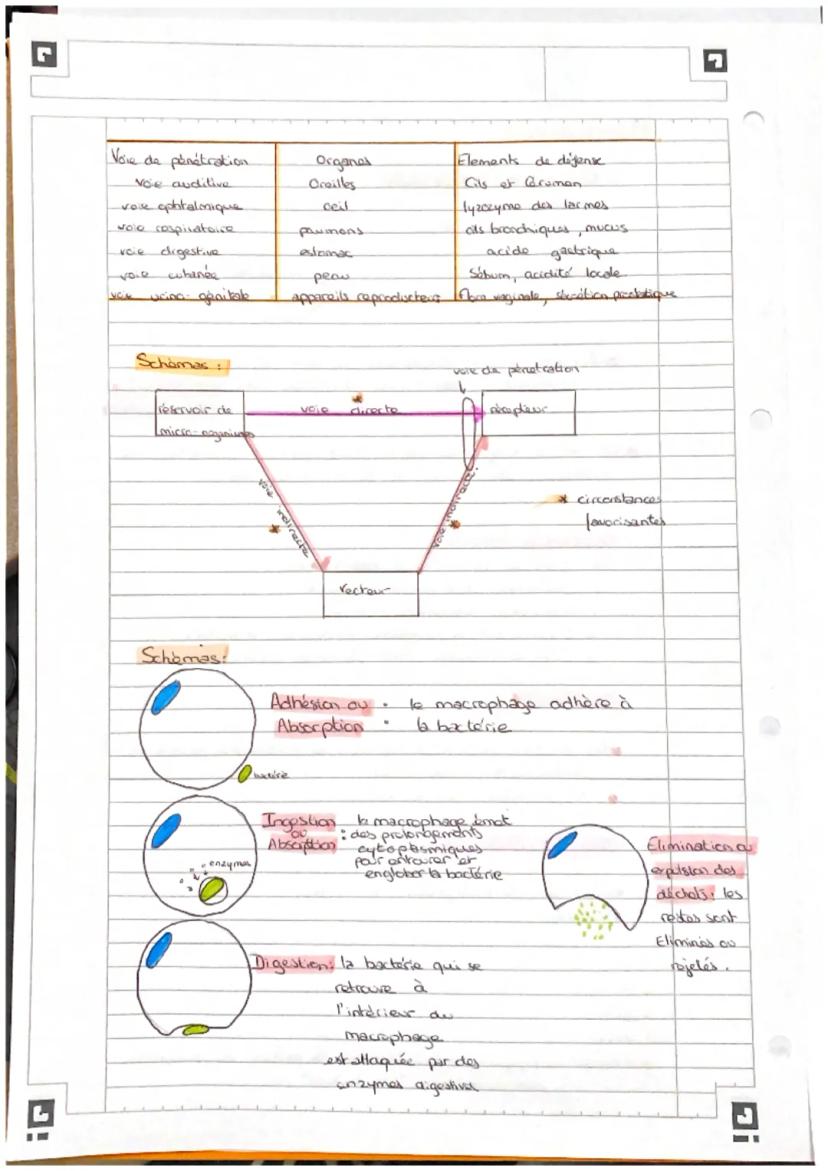 Voie de pénétration Organes Elements de défense
voie auditive Oreilles Cils et Cérumen
voie ophtalmique oeil lyzozyme des larmes
voie respiratoire poumons cils bronchiques, mucus
voie digestive estomac acide gastrique
voie cutanée peau Sébum, acidité locale
voie urino-génitale appareils reproducteurs flore vaginale, sécrétion prostatique
Schémas :
voie de pénétration
réservoir de
micro-organismes
voie directe
récepteur
voie indirecte
voie indirecte
* circonstances
favorisantes
Vecteur
Schémas:
Adhésion ou : le macrophage adhère à
Absorption la bactérie
bactérie
Ingestion le macrophage émet
ou : des prolongements
Absorption cytoplasmiques
pour entourer et
englober la bactérie
enzymes
Elimination ou
expulsion des
déchets: les
restes sont
Eliminés ou
rejetés.
Digestion: la bactérie qui se
retrouve à
l'intérieur du
macrophage
est attaquée par des
enzymes digestives